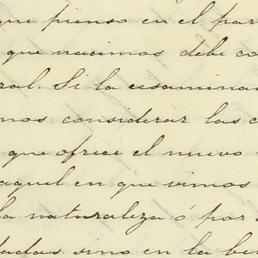 que pienso en el par
que nacimos debe co
ral. Si la examinam
mos considerar las c
que ofrece el nuevo
aquel en que vimos
la naturaleza ó por
dadas sino en la be